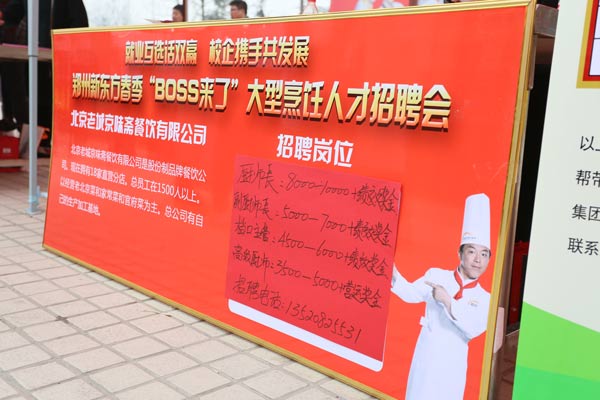 就业互选话双赢 校企携手共发展
郑州新东方春季“BOSS来了”大型烹饪人才招聘会
北京老城京味斋餐饮有限公司
北京老城京味斋餐饮有限公司是股份制品牌餐饮公
司。现在拥有18家直营分店，总员工在1500人以上。
以经营老北京菜和家常菜和官府菜为主，总公司有自
己的生产加工基地。
招聘岗位
厨师长：8000—10000+绩效奖金
副厨师长：5000—7000+绩效奖金
档口主管：4500—6000+绩效奖金
高级厨师：3500—5000+营运奖金
招聘电话：13520825531
占
帮带
集团
联系